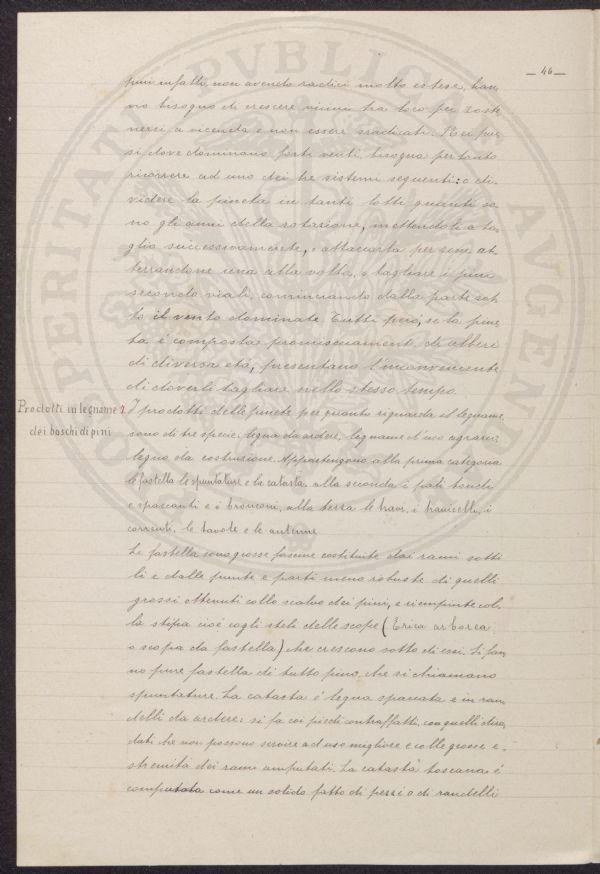 — 46 —
pini infatti, non avendo radici molto estese, han,
no bisogno di crescere vicini tra loro per soste
nersi a vicenda e non essere sradicati. Nei pae,
si dove dominano forti venti, bisogna pertanto
ricorrere ad uno dei tre sistemi seguenti: o di-
videre la pineta in tanti lotti quanti so
no gli anni della rotazione, mettendoli a ta,
glio successivamente, o attaccarla per sezi at,
terrandone una alla volta, o tagliare i pini
secondo viali, cominciando dalla parte sot
to il vento dominate. Tutti però, se la pine
ta è composta promiscuamente di alberi
di diversa età, presentano l'inconveniente
di doverli tagliare nello stesso tempo.
Prodotti in legname
dei boschi di pini
I prodotti delle pinete per quanto riguarda il legname
sono di tre specie: legna da ardere, legname d'uso agrario,
legno da costruzione. Appartengono alla prima categoria
le fastella le spuntature e la catasta. alla seconda i pali tondi
e spaccanti e i bronconi, alla terza le travi, i travicelli, i
correnti, le tavole e le antenne
Le fastella sono grosse fascine costituite dai rami sotti
li e dalle punte e parti meno robuste di quelli
grossi ottenuti collo scalvo dei pini, e riempiute col,
la stipa cioè cogli steli delle scope (Erica arborea
o scopa da fastella) che crescono sotto di essi. Si fan
no pure fastella di tutto pino, che si chiamano
spuntature. La catasta è legna spaccata e in ran
delli da ardere: si fa coi piedi contraffatti, con quelli
dati che non possono servire ad uso migliore e colle grosse e,
stremità dei rami amputati. La catasta toscana è
computata come un solido fatto di pezzi o di randelli
PERITATI PVBLICAE AVGENDAE